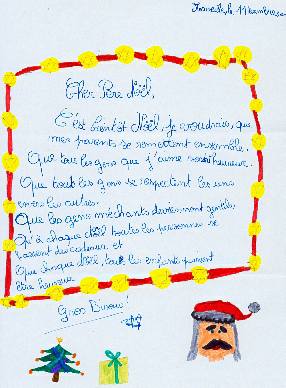 le 11
Cher Père Noël,
C'est bientôt Noël, je voudrais, que
mes parents se remettent ensemble.
Que tous les gens que j'aime soient heureux.
Que tous les gens se respectent les uns
envers les autres.
Que les gens méchants deviennent gentils,
Qu'à chaque Noël toutes les personnes se
fassent des cadeaux et
Que chaque Noël, tous les enfants puissent
être heureux
Gros Bisous!